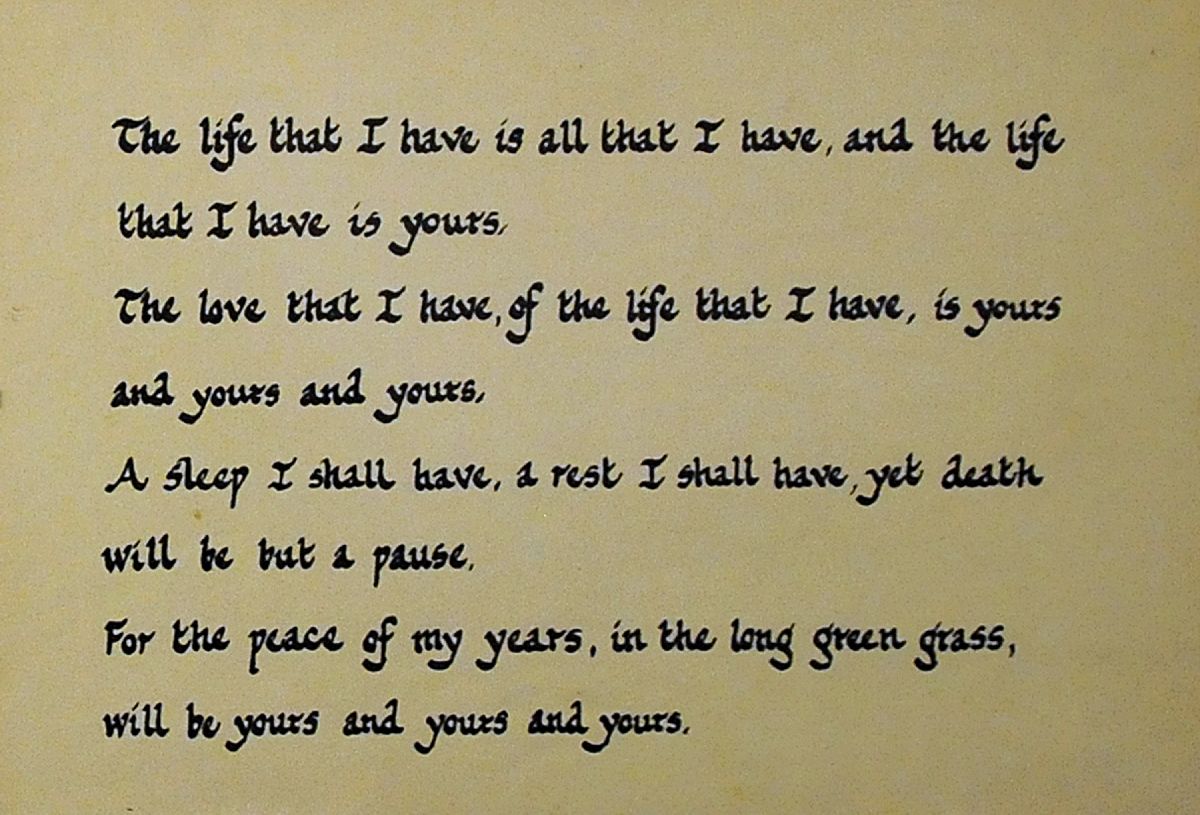 The life that I have is all that I have, and the life
that I have is yours.
The love that I have, of the life that I have, is yours
and yours and yours.
A sleep I shall have, a rest I shall have, yet death
will be but a pause.
For the peace of my years, in the long green grass,
will be yours and yours and yours.